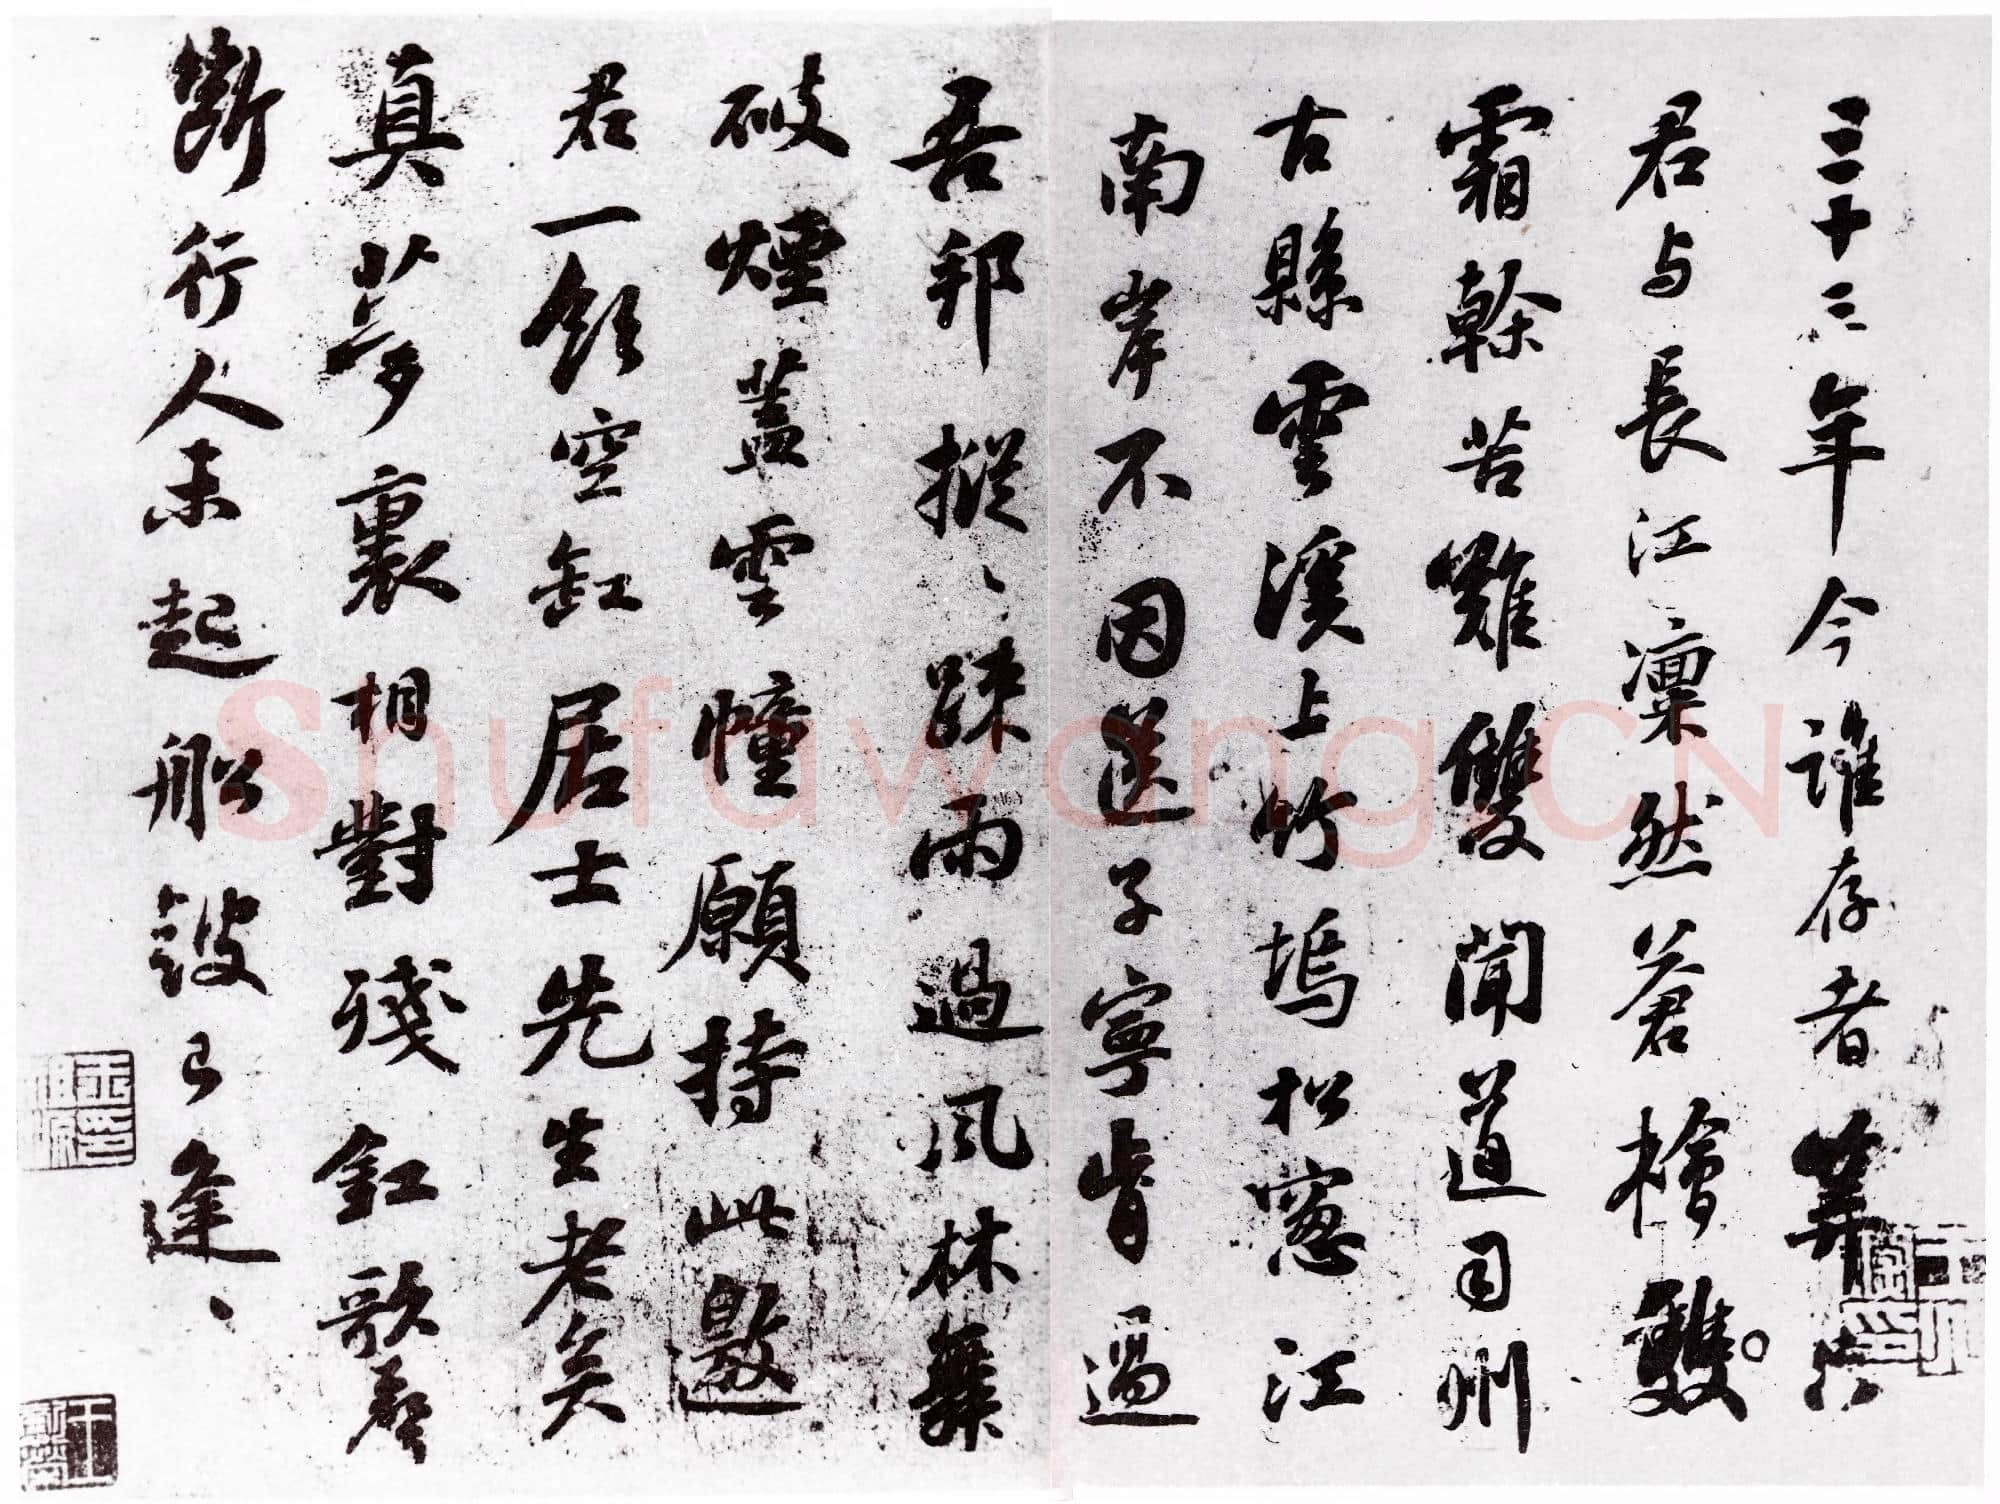 三十三年今誰存者筭只
君与長江凛然蒼檜雙
霜幹苦難雙聞道司州
古縣雲溪上竹塢松窓江
南岸不因送子寧肯過
吾邦摐〻踈雨過風林舞
破煙蓋雲幢願持此邀
君一飲空缸居士先生老矣
真夢裏相對殘釭歌聲
斷行人未起船鼓已逢〻
Shufawang.CN